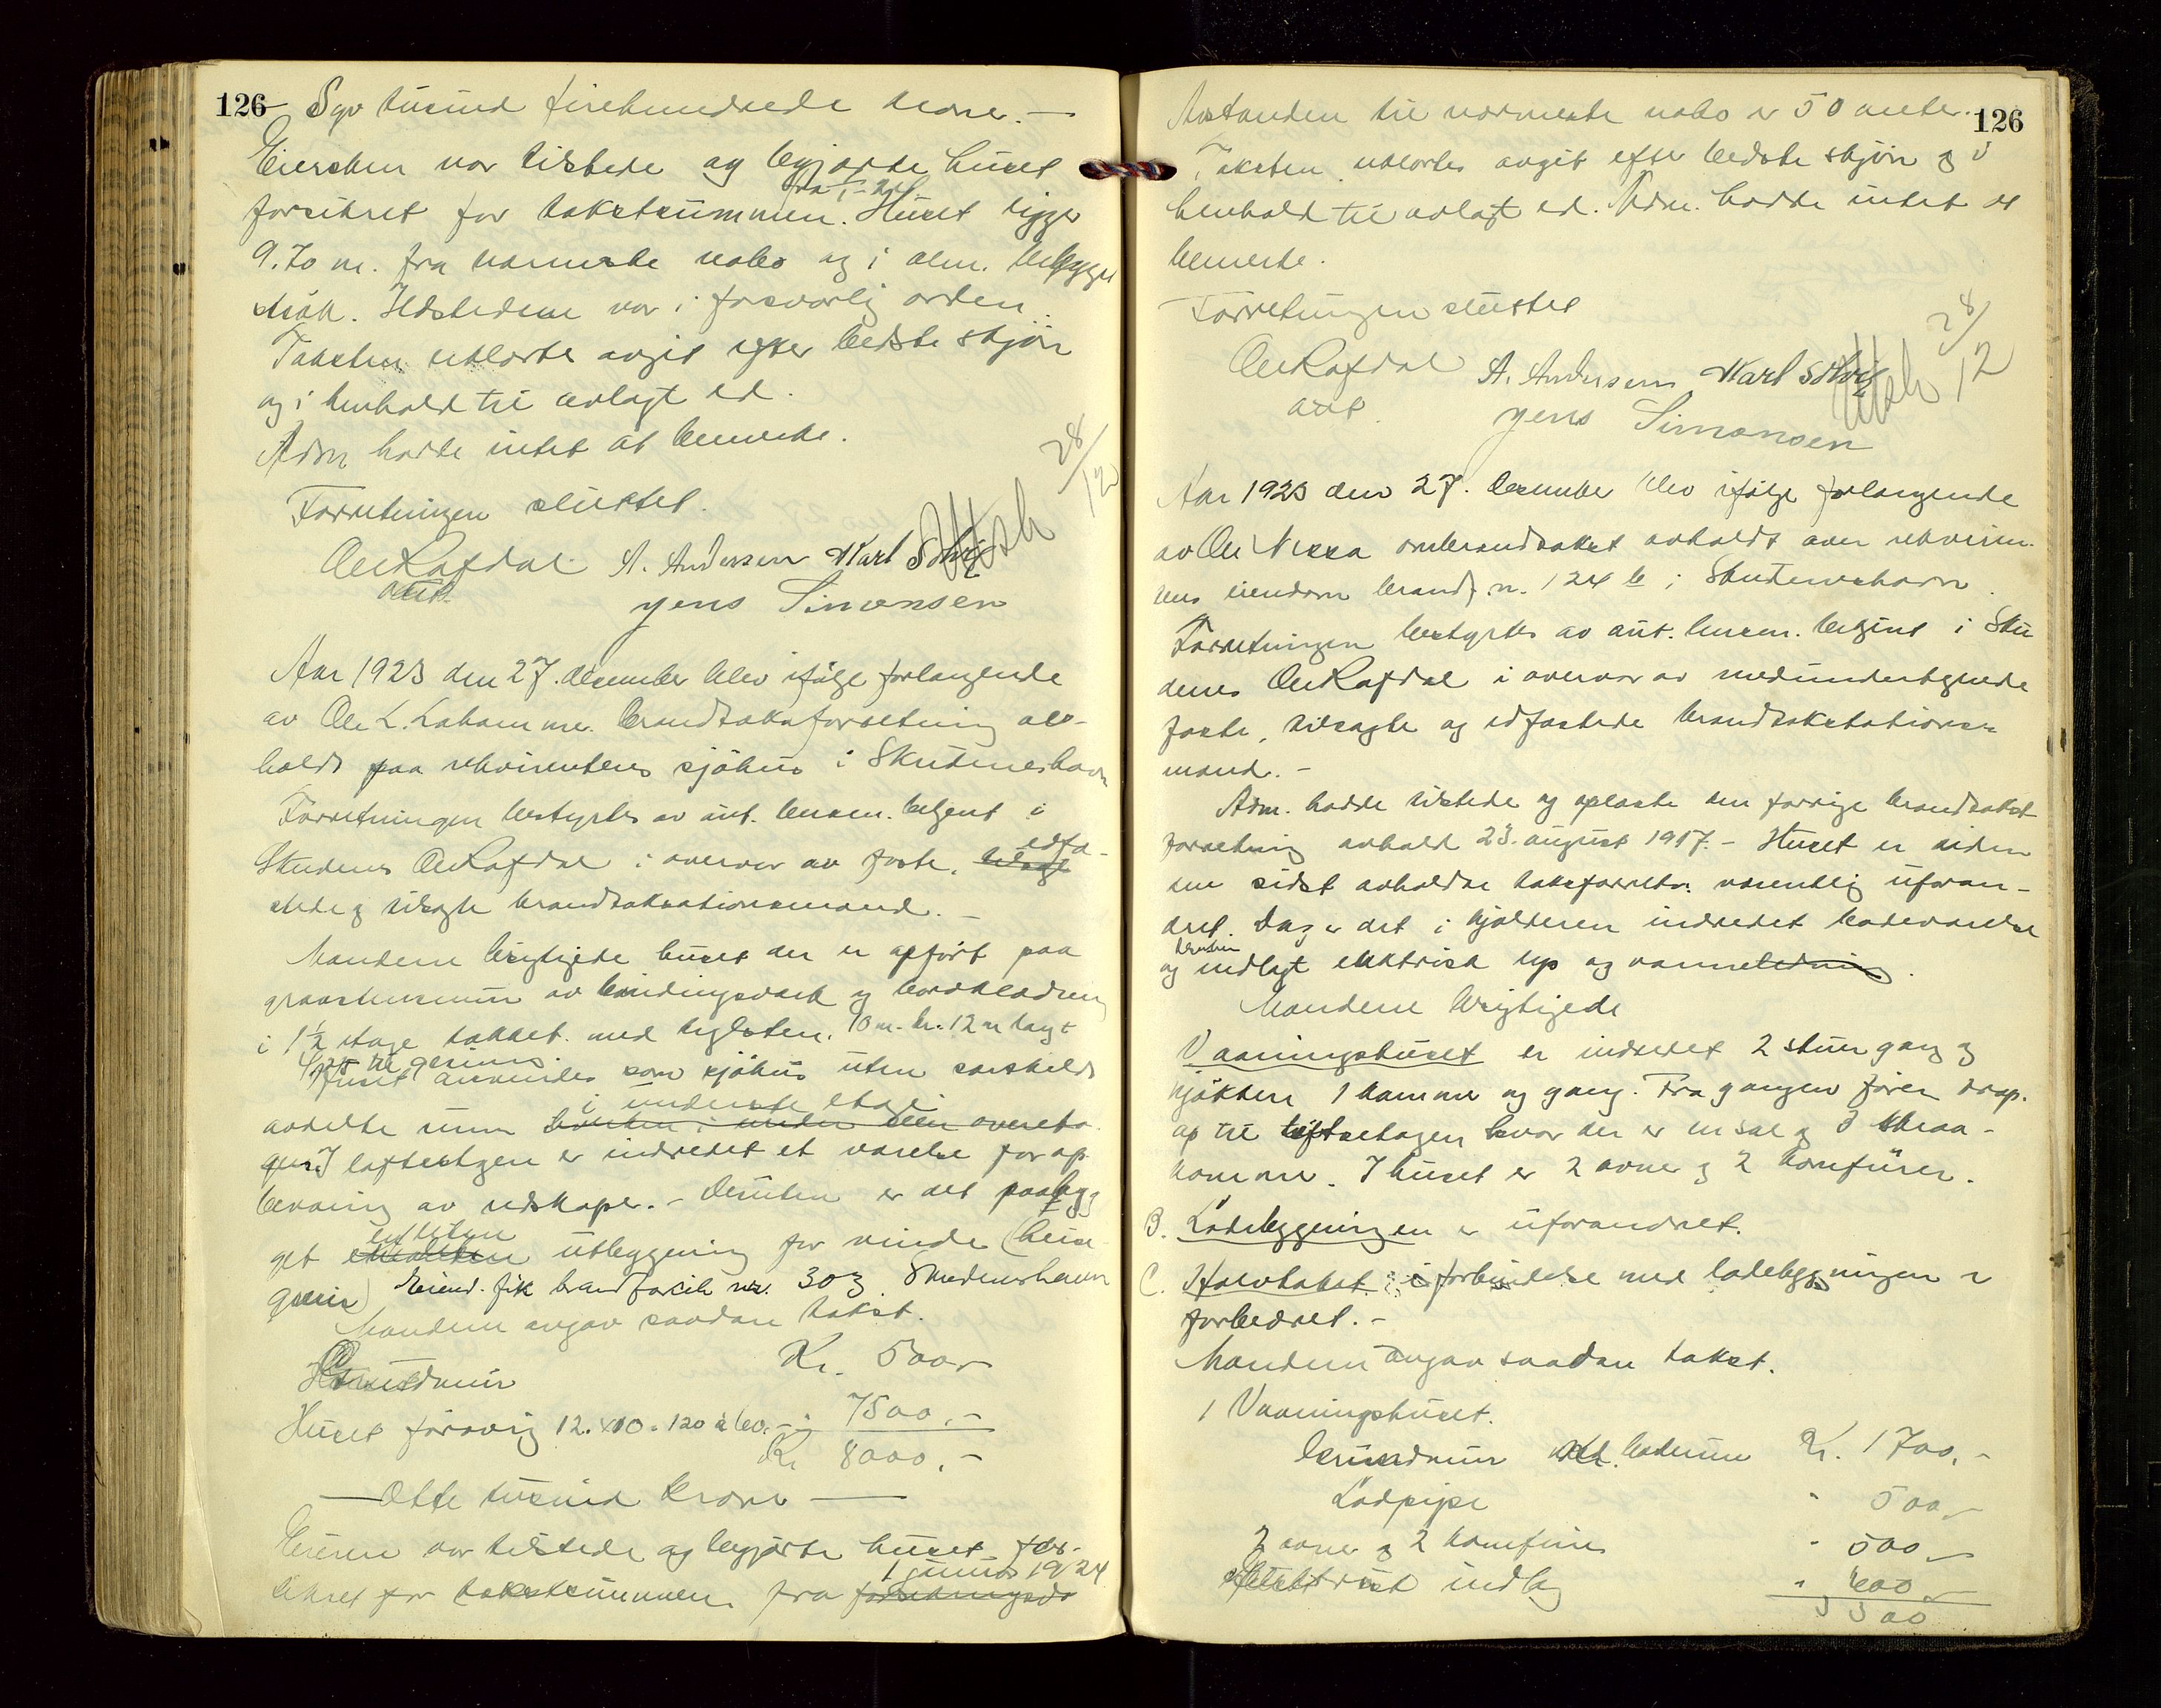 126
Syv tusind firehundrede kroner. —
Eiersken var tilstede og begjærte huset
forsikret for takstsummen. Huset ligger
9.70 m. fra nærmeste nabo og i alm. bebygget
strøk. Ildstedene var i forsvarlig orden.
Taksten utførtes avgit efter bedste skjøn
og i henhold til avlagt ed.
Adm hadde intet at bemerke.
28/12
Forretningen sluttet.
Ole Rafdal A. Andersen Karl
aut. Jens Simonsen
Aar 1923 den 27. december blev ifølge forlangende
av Ole L. Lahamme. brandtakstforretning av-
holdt paa rekvirentens sjøhus i Skudeneshavn
Forretningen bestyrtes av aut. lensm. betjent i
edfæ-
Skudenes Ole Rafdal i overvær av faste,
stede og tilsagte brandtakstationsmænd. —
Mændene besigtigede huset der er opført paa
graastensmur av bindingsverk og bordklædning
i 1½ etage tækket med taglsten. 10 m. br. 12 m lang +
4,25 til gesims.
Huset anvendes som sjøhus uten særskilt
i underste etage
avdelte rum
I loftsetagen er indredet et værelse for op-
bevaring av redskaper. — Desuten er det paabyg
en liten
get utbygning for vinde (heise
greie) Eiend. fik brandforsik nr. 303 Skudeneshavn
Mændene avgav saadan takst.
Grundmur Kr. 500,-
Huset forøvrig 12. x 10 = 120 à 60.- 7500.-
Kr 8000.-
— Otte tusind kroner —
Eieren var tilstede og begjærte huset for-
1 januar 1924
sikret for takstsummen fra forretningsda
126
Avstanden til nærmeste nabo er 50 meter.
Taksten utførtes avgit efter bedste skjøn og i
henhold til avlagt ed. Adm. hadde intet at
bemerke.
Forretningen sluttet
28/12
Ole Rafdal A. Andersen Karl
aut. Jens Simonsen
Aar 1923 den 27. december blev ifølge forlangende
av Ole ombrandtakst avholdt over rekviren-
tens eiendom brandf. n. 124 b i Skudeneshavn.
Forretningen bestyrtes av aut. lensm. betjent i Sku
denes Ole Rafdal i overvær av medundertegnede
faste, tilsagte og edfæstede brandtakstations-
mænd. —
Adm. hadde tilstede og oplæste den forrige brandtakst
forretning avholdt 23. august 1917. — Huset er siden
den sidst avholdte takstforretn. væsentlig uforan-
dret. Dog er det i kjælderen indredet badeværelse
desuten
og indlagt elektrisk lys og varmeledning.
Mændene besigtigede
Vaaningshuset er indredet 2 stuer gang og
kjøkken 1 kammer og gang. Fra gangen fører trap.
op til loftsetagen hvor der er en sal og 3 skraa-
kammer. I huset er 2 ovner og 2 komfurer.
B. Ladebygningen er uforandret.
C. Halvtaket i forbindelse med ladebygningen er
forbedret. —
Mændene avgav saadan takst.
1 Vaaningshuset.
Grundmur med baderum Kr. 1700.-
Lødpipe " 500,-
2 ovner og 2 komfurer " 500,-
Elektrisk indlæg " 600,-
3300